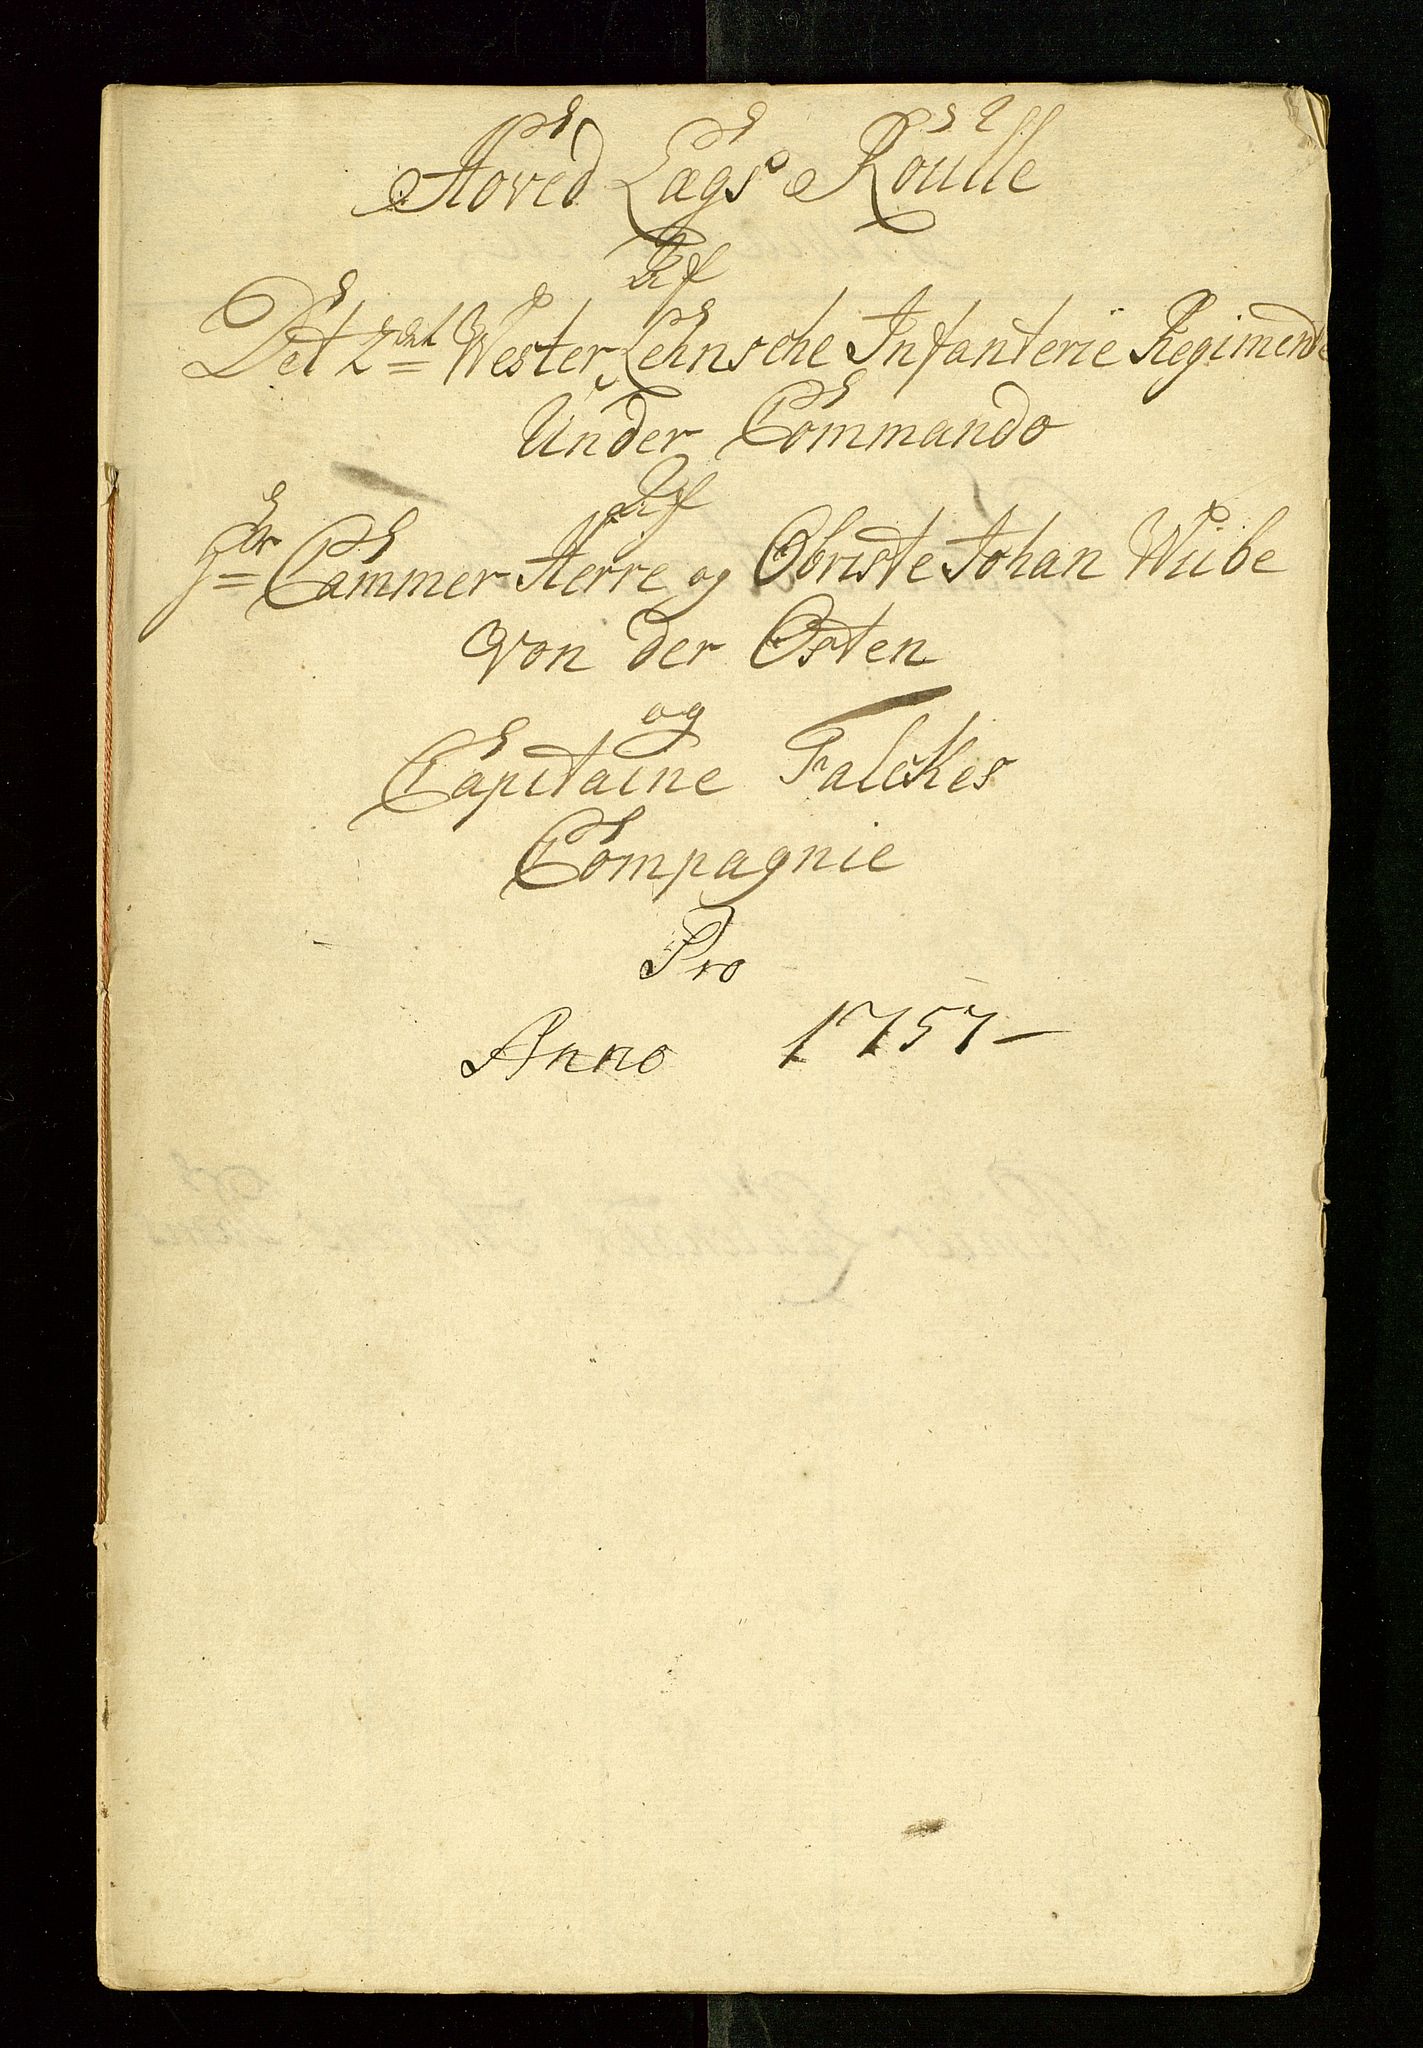 Hoved Lægs Roulle
Af
Det 2det Wester Lehnsche Infanterie Regimendt
Under Commando
Af
Hr Cammer Herre og Obriste Johan Wibe
Von der Osten
og
Capitaine Falckes
Compagnie
Pro
Anno 1757